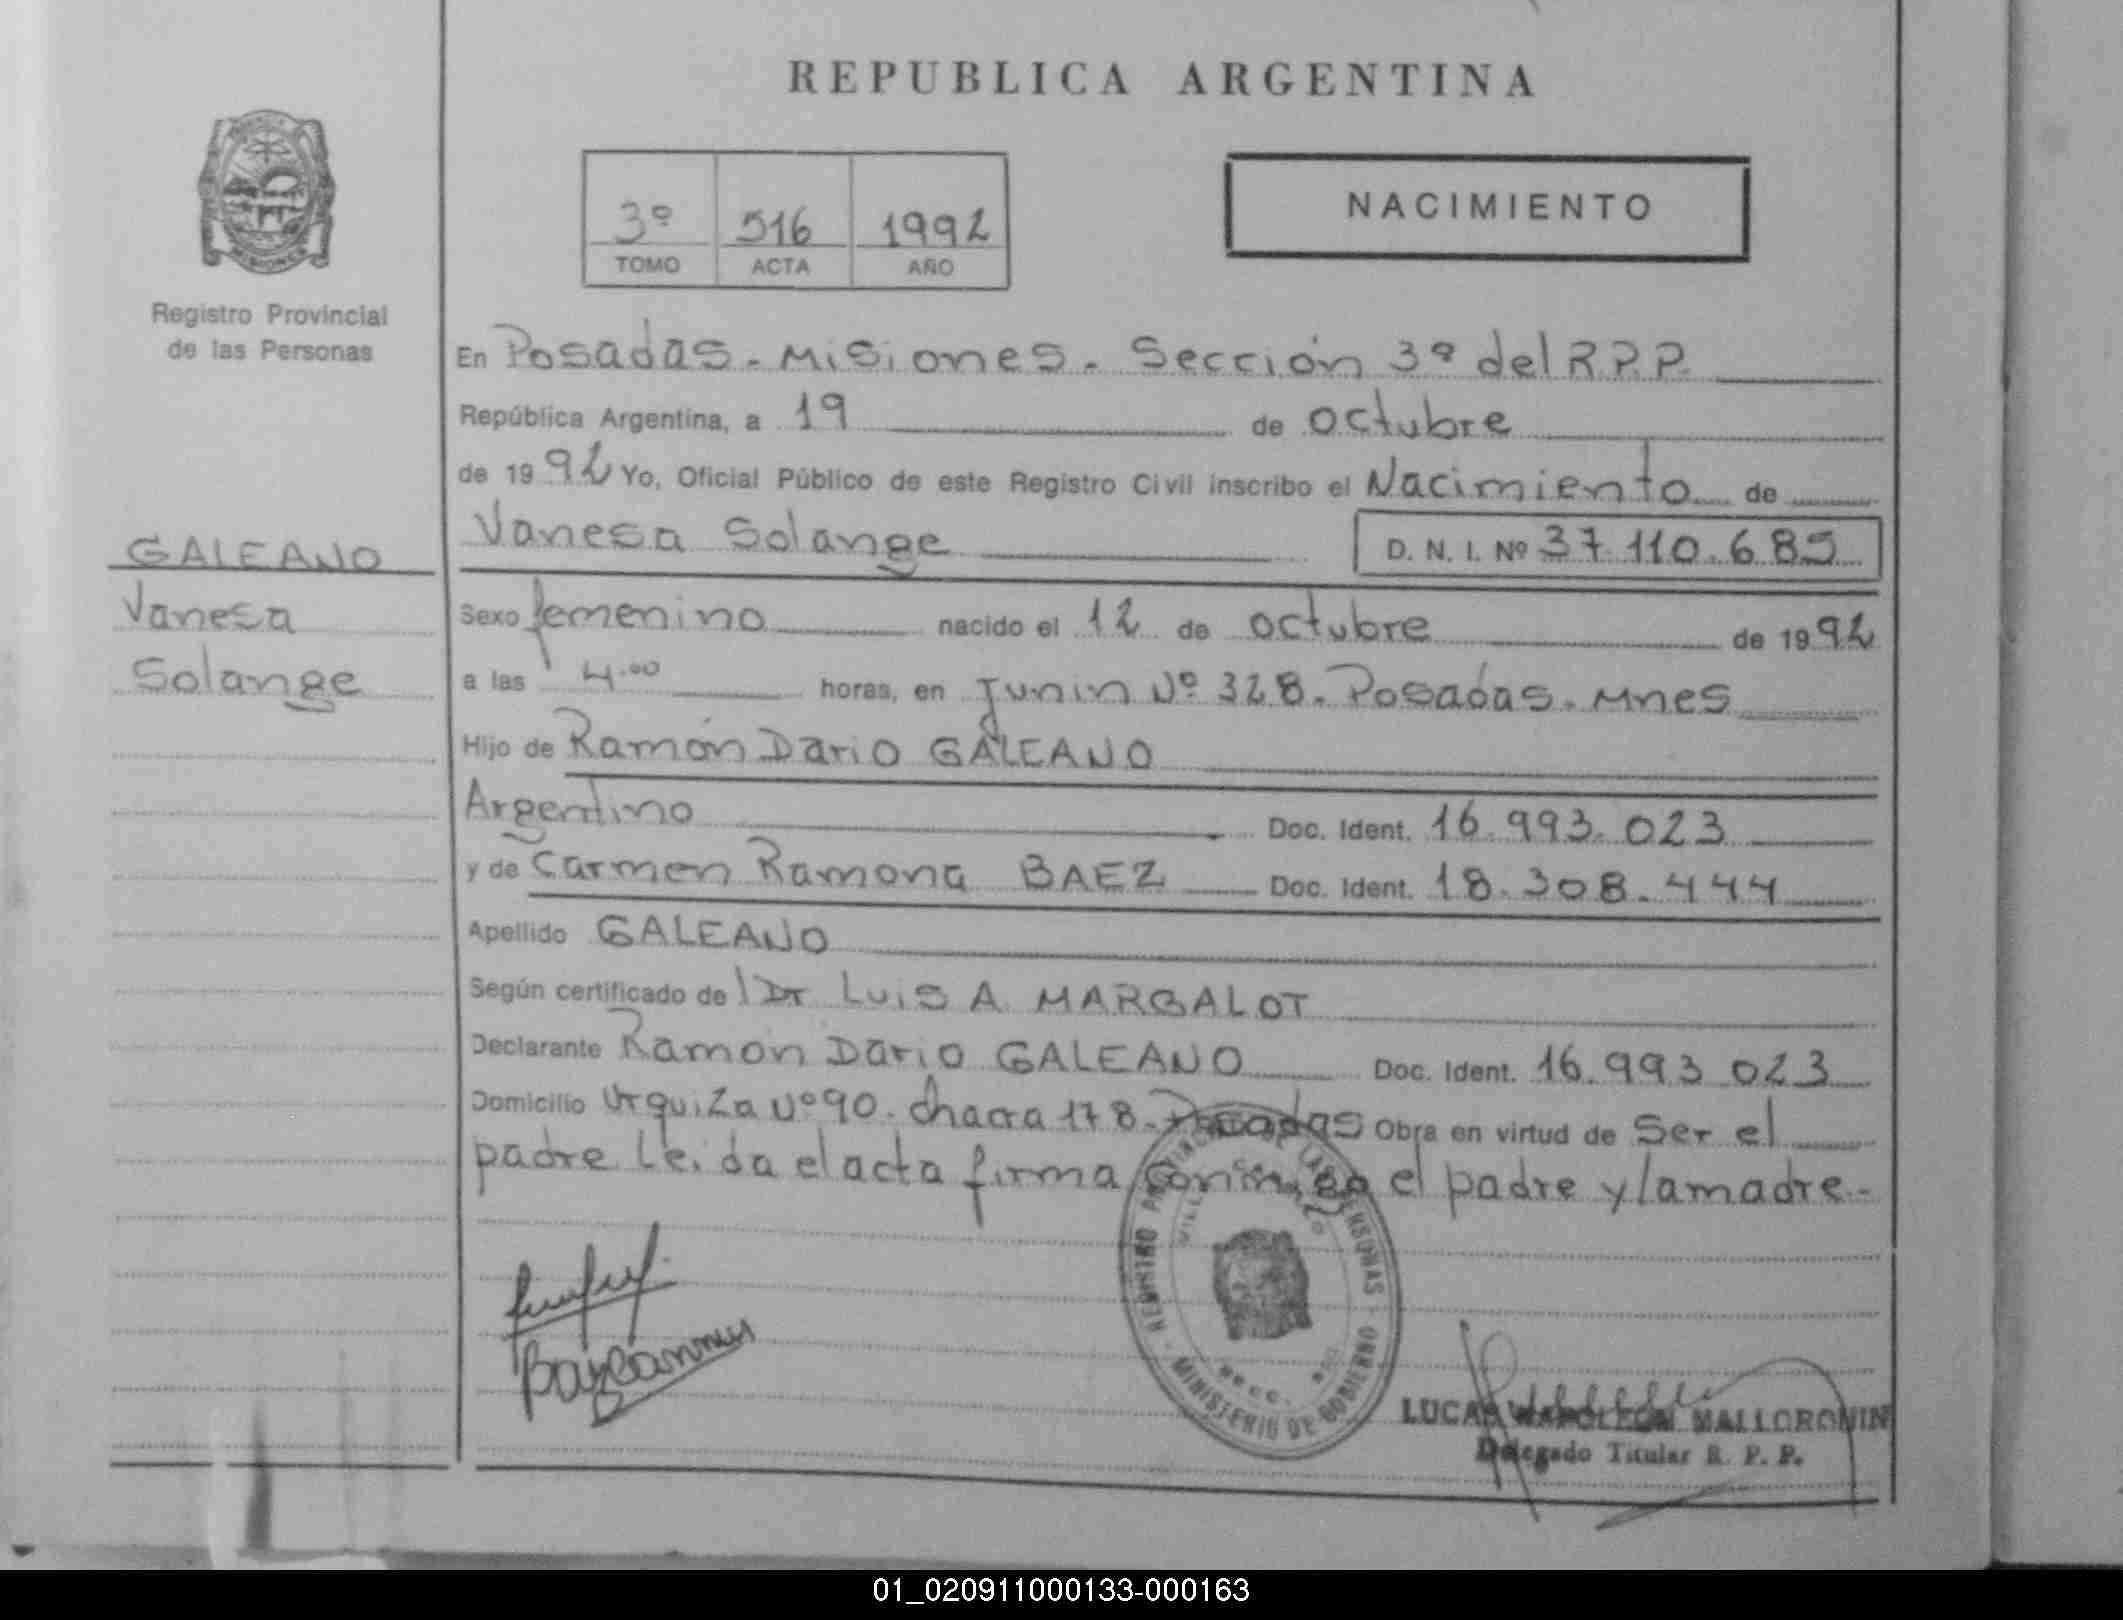 REPUBLICA ARGENTINA
3º 516 1992
TOMO ACTA AÑO
NACIMIENTO
MISIONES
Registro Provincial
de las Personas
GALEANO
Vanesa
Solange
En Posadas - Misiones - Sección 3º del R.P.P.
República Argentina, a 19 de octubre
de 1992 Yo, Oficial Público de este Registro Civil inscribo el Nacimiento de
Vanesa Solange D. N. I. Nº 37.110.685
Sexo femenino nacido el 12 de octubre de 1992
a las 4.00 horas, en Junin Nº 328 - Posadas - Mnes
Hijo de Ramón Dario GALEANO
Argentino Doc. Ident. 16.993.023
y de Carmen Ramona BAEZ Doc. Ident. 18.308.444
Apellido GALEANO
Según certificado de Dr Luis A. MARGALOT
Declarante Ramón Dario GALEANO Doc. Ident. 16.993 023
Domicilio Urquiza Nº 90 - chacra 178 - Posadas Obra en virtud de Ser el
padre Leida el acta firma conmigo el padre y la madre.-
REGISTRO PROVINCIAL DE LAS PERSONAS - MINISTERIO DE GOBIERNO
LUCAS NAPOLEON MALLORQUIN
Delegado Titular R. P. P.
01_020911000133-000163